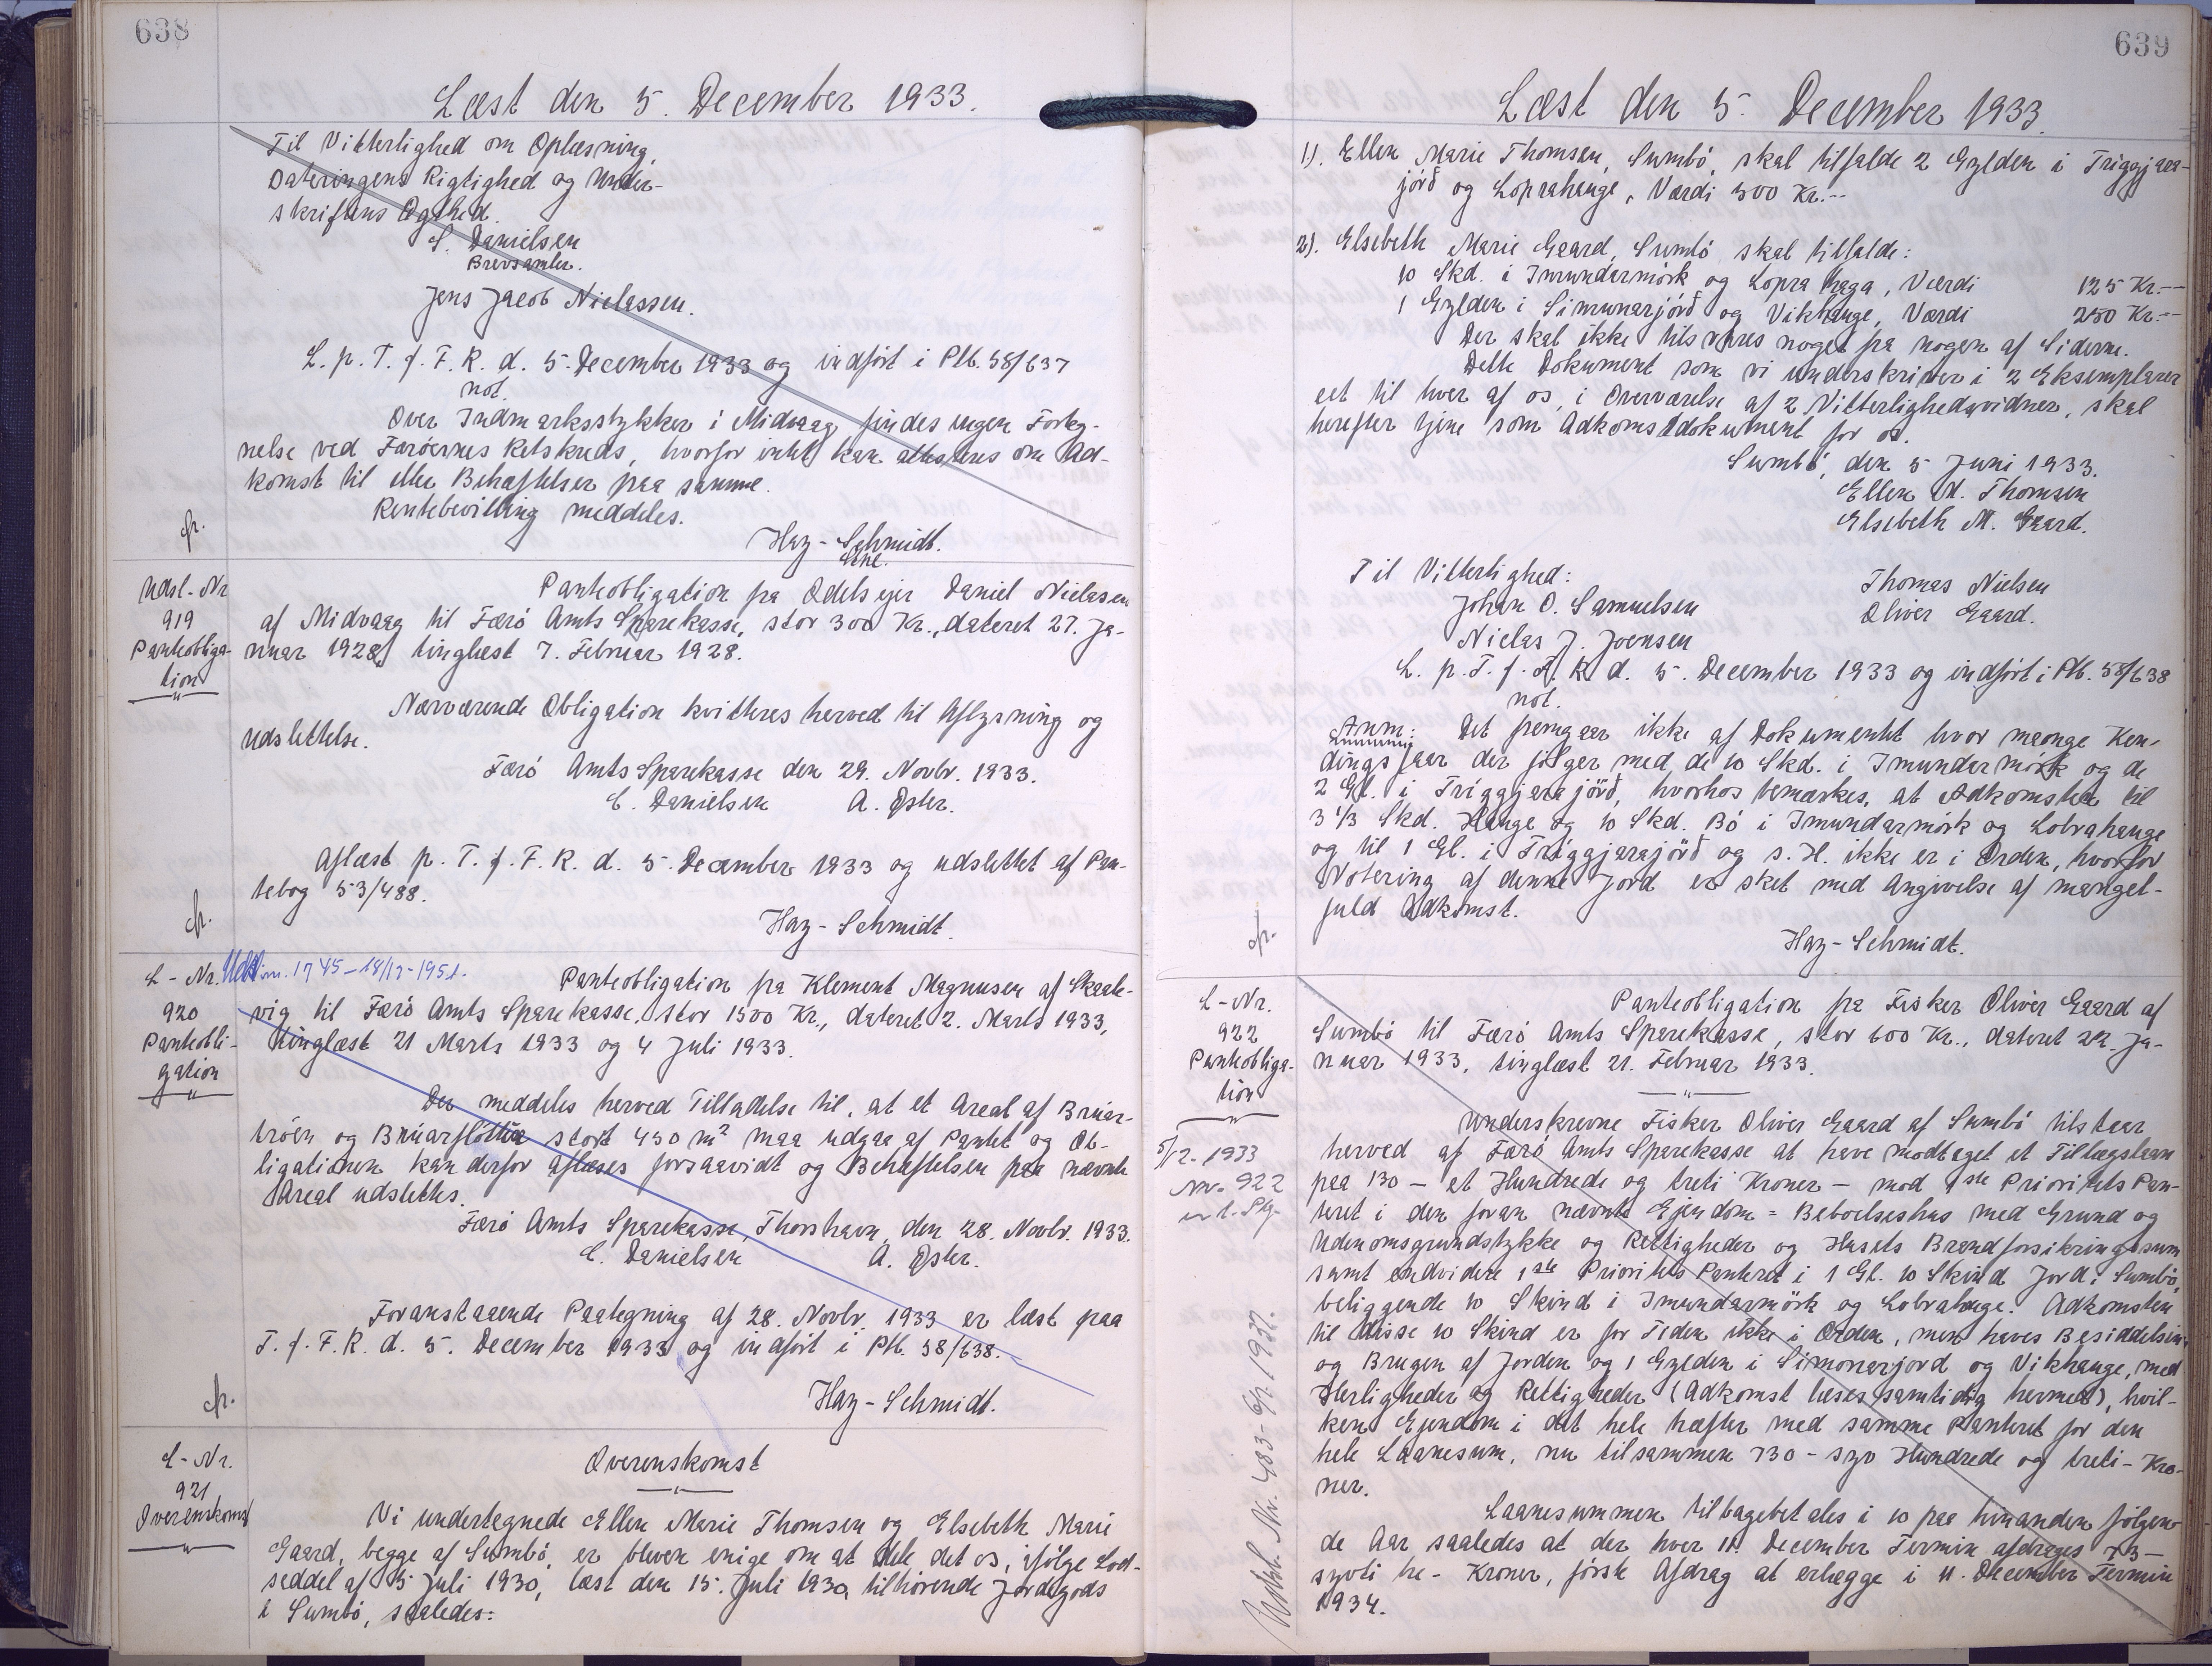 638
Læst den 5. December 1933.
Til Vitterlighed om Oplæsning,
Dateringens Rigtighed og Under-
skriftens Ægthed.
S. Danielsen
Brevsamler.
Jens Jacob Niclassen.
L. p. T. f. F. R. d. 5. December 1933 og indført i Ptb. 58/637
not.
Over Indmarksstykker i Midvaag findes ingen Forteg-
nelse ved Færøernes Retskreds, hvorfor intet kan attesteres om Ad-
komst til eller Behæftelser paa samme.
Rentebevilling meddeles.
cfr.
Hay-Schmidt.
Udsl.-Nr
919
Panteobliga-
tion
Panteobligation fra Odelsejer Daniel Niclasen
af Midvaag til Færø Amts Sparekasse, stor 300 Kr., dateret 27. Ja-
nuar 1928, tinglæst 7. Februar 1928.
Nærværende Obligation kvitteres herved til Aflysning og
Udslettelse.
Færø Amts Sparekasse den 29. Novbr. 1933.
C. Danielsen A. Øster.
Aflæst p. T. f. F. R. d. 5. December 1933 og udslettet af Pan-
tebog 53/488.
cfr.
Hay-Schmidt.
L-Nr. 1745-18/12-1951.
920
Panteobli-
gation
Panteobligation fra Klement Magnusen af Skaale-
vig til Færø Amts Sparekasse, stor 1500 Kr., dateret 2. Marts 1933,
tinglæst 21 Marts 1933 og 4 Juli 1933.
Der meddeles herved Tilladelse til, at et Areal af Brúar-
tróen og Brúarfløttin stort 450 m² maa udgaa af Pantet og Ob-
ligationen kan derfor aflæses forsaavidt og Behæftelsen paa nævnte
Areal udslettes.
Færø Amts Sparekasse, Thorshavn, den 28. Novbr. 1933.
C. Danielsen A. Øster.
Foranstaaende Paategning af 28. Novbr. 1933 er læst paa
T. f. F. R. d. 5. December 1933 og indført i Ptb. 58/638.
cfr.
Hay-Schmidt.
L-Nr.
921
Overenskomst
Overenskomst
Vi undertegnede Ellen Marie Thomsen og Elsebeth Marie
Gaard, begge af Sumbø, er bleven enige om at dele det os, ifølge Lod-
seddel af 5 Juli 1930, læst den 15. Juli 1930, tilhørende Jordegods
i Sumbø, saaledes:
639
Læst den 5. December 1933.
1). Ellen Marie Thomsen, Sumbø, skal tilfalde 2 Gylden i Triggjara-
jörð og Loprahauge, Værdi 500 Kr.--
2). Elsebeth Marie Gaard, Sumbø skal tilfalde:
10 Skd. i Imundarmörk og Lopra haga, Værdi 125 Kr.--
1 Gylden i Simunarjörð og Vikhauge, Værdi 250 Kr.--
Der skal ikke tilsvares noget fra nogen af Siderne.
Dette Dokument som vi underskriver i 2 Eksemplarer
eet til hver af os, i Overværelse af 2 Vitterlighedsvidner, skal
herefter tjene som Adkomstdokument for os.
Sumbø, den 5 Juni 1933.
Ellen M. Thomsen
Elsebeth M. Gaard.
Til Vitterlighed:
Thomas Nielsen
Johan O. Samuelsen
Oliver Gaard.
Niclas J. Joensen
L. p. T. f. F. R. d. 5. December 1933 og indført i Ptb. 58/638
not.
Anm: Det fremgaar ikke af Dokumentet hvor mange Ken-
dingsfaar der følger med de 10 Skd. i Imundarmörk og de
2 Gl. i Triggjarajörð, hvorhos bemærkes, at Adkomsten til
3 1/3 Skd. Hauge og 10 Skd. Bø i Imundarmörk og Lobrahauge
og til 1 Gl. i Triggjarajörð og s. H. ikke er i Orden, hvorfor
Notering af denne Jord er sket med Angivelse af mangel-
fuld Adkomst.
cfr.
Hay-Schmidt.
L-Nr.
922
Panteobliga-
tion
Panteobligation fra Fisker Oliver Gaard af
Sumbø til Færø Amts Sparekasse, stor 600 Kr., dateret 22. Ja-
nuar 1933, tinglæst 21. Februar 1933.
5/12-1933
Nr. 922
Underskrevne Fisker Oliver Gaard af Sumbø tilstaar
herved af Færø Amts Sparekasse at have modtaget et Tillægslaan
paa 130 - et Hundrede og treti Kroner - mod 1ste Prioritets Pan-
teret i den foran nævnte Ejendom = Beboelseshus med Grund og
Udenomsgrundstykke og Rettigheder og Husets Brandforsikringssum
samt endvidere 1ste Prioritets Panteret i 1 Gl. 10 Skind Jord i Sumbø,
beliggende 10 Skind i Imundarmörk og Lobrahauge. Adkomsten
til disse 10 Skind er for Tiden ikke i Orden, men haves Besiddelsen
og Brugen af Jorden og 1 Gylden i Simonarjord og Vikhauge, med
Herligheder og Rettigheder (Adkomst læses samtidig hermed), hvil-
ken Ejendom i det hele hæfter med samme Panteret for den
hele Laanesum, nu tilsammen 730 - syv Hundrede og treti - Kro-
ner.
Laanesummen tilbagebetales i 10 paa hinanden følgen-
de Aar saaledes at der hver 11. December Termin afdrages 73 -
syvti tre - Kroner, første Afdrag at erlægge i 11. December Termin
1934.
Udsl. Nr. 483- 1937.